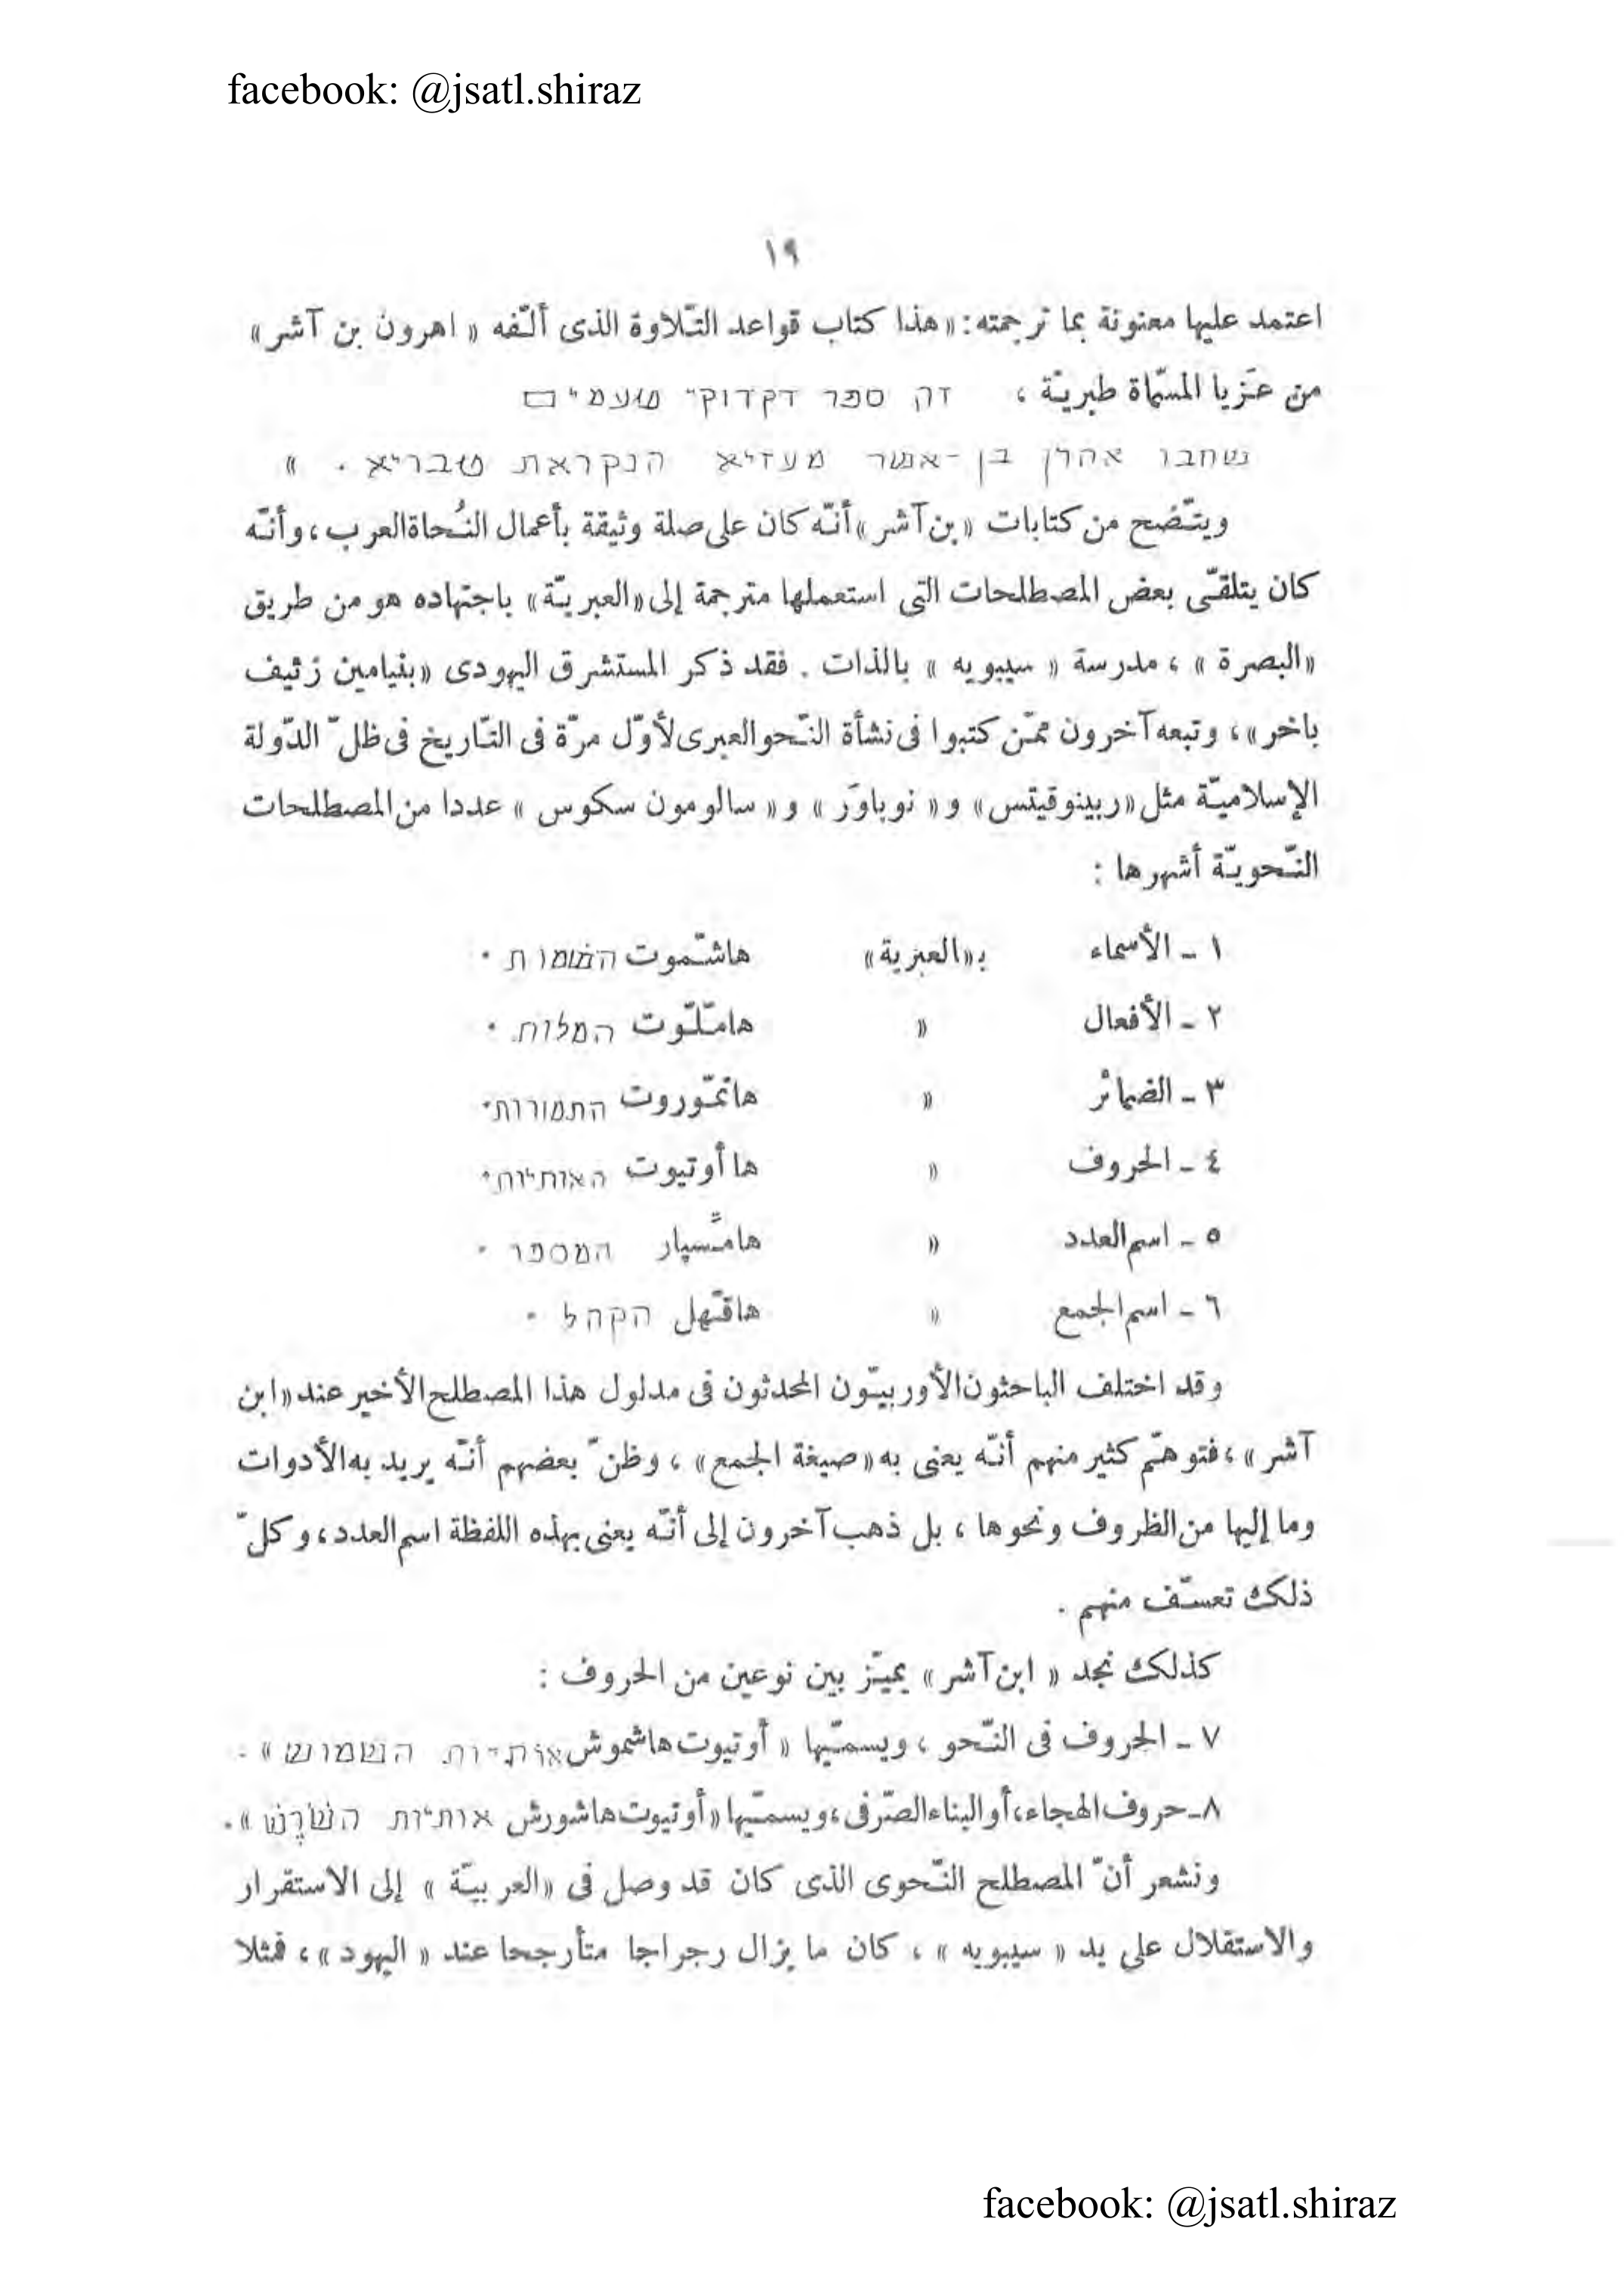 facebook: @jsatl.shiraz
١٩
اعتمد عليها معنونة بما ترجمته: « هذا كتاب قواعد التّلاوة الذى ألّفه « اهرون بن آشر »
من عَزيا المسمّاة طبريّة ، זה ספר דקדוקי טועמים
שחברו אהרן בן-אשר מעזיא הנקראת טבריא . »
ويتّضح من كتابات « بن آشر » أنّه كان على صلة وثيقة بأعمال النُحاة العرب ، وأنّه
كان يتلقّى بعض المصطلحات التى استعملها مترجمة إلى « العبريّة » باجتهاده هو من طريق
« البصرة » ، مدرسة « سيبويه » بالذات . فقد ذكر المستشرق اليهودى « بنيامين زئيف
باخر » ، وتبعه آخرون ممّن كتبوا فى نشأة النّحو العبرى لأوّل مرّة فى التّاريخ فى ظلّ الدّولة
الإسلاميّة مثل « ربينوڤيتس » و « نوباوَر » و « سالومون سكوس » عددا من المصطلحات
النّحويّة أشهرها :
١ ـ الأسماء بـ«العبرية» هاشّموت השמות .
٢ ـ الأفعال » هامّلّوت המלות .
٣ ـ الضمائر » هاتّموروت התמורות .
٤ ـ الحروف » هاأوتيوت האותיות .
٥ ـ اسم العدد » هامّسپار המספר .
٦ ـ اسم الجمع » هاقّهل הקהל .
وقد اختلف الباحثون الأوربيّون المحدثون فى مدلول هذا المصطلح الأخير عند « ابن
آشر » ، فتوهّم كثير منهم أنّه يعنى به « صيغة الجمع » ، وظنّ بعضهم أنّه يريد به الأدوات
وما إليها من الظروف ونحوها ، بل ذهب آخرون إلى أنّه يعنى بهذه اللفظة اسم العدد ، وكلّ
ذلك تعسّف منهم .
كذلك نجد « ابن آشر » يميّز بين نوعين من الحروف :
٧ ـ الحروف فى النّحو ، ويسمّيها « أوتيوت هاشموش אותיות השמוש » .
٨ ـ حروف الهجاء ، أو البناء الصّرفى ، ويسمّيها « أوتيوت هاشورش אותיות השֹרֶש » .
ونشعر أنّ المصطلح النّحوى الذى كان قد وصل فى « العربيّة » إلى الاستقرار
والاستقلال على يد « سيبويه » ، كان ما يزال رجراجا متأرجحا عند « اليهود » ، فمثلا
facebook: @jsatl.shiraz